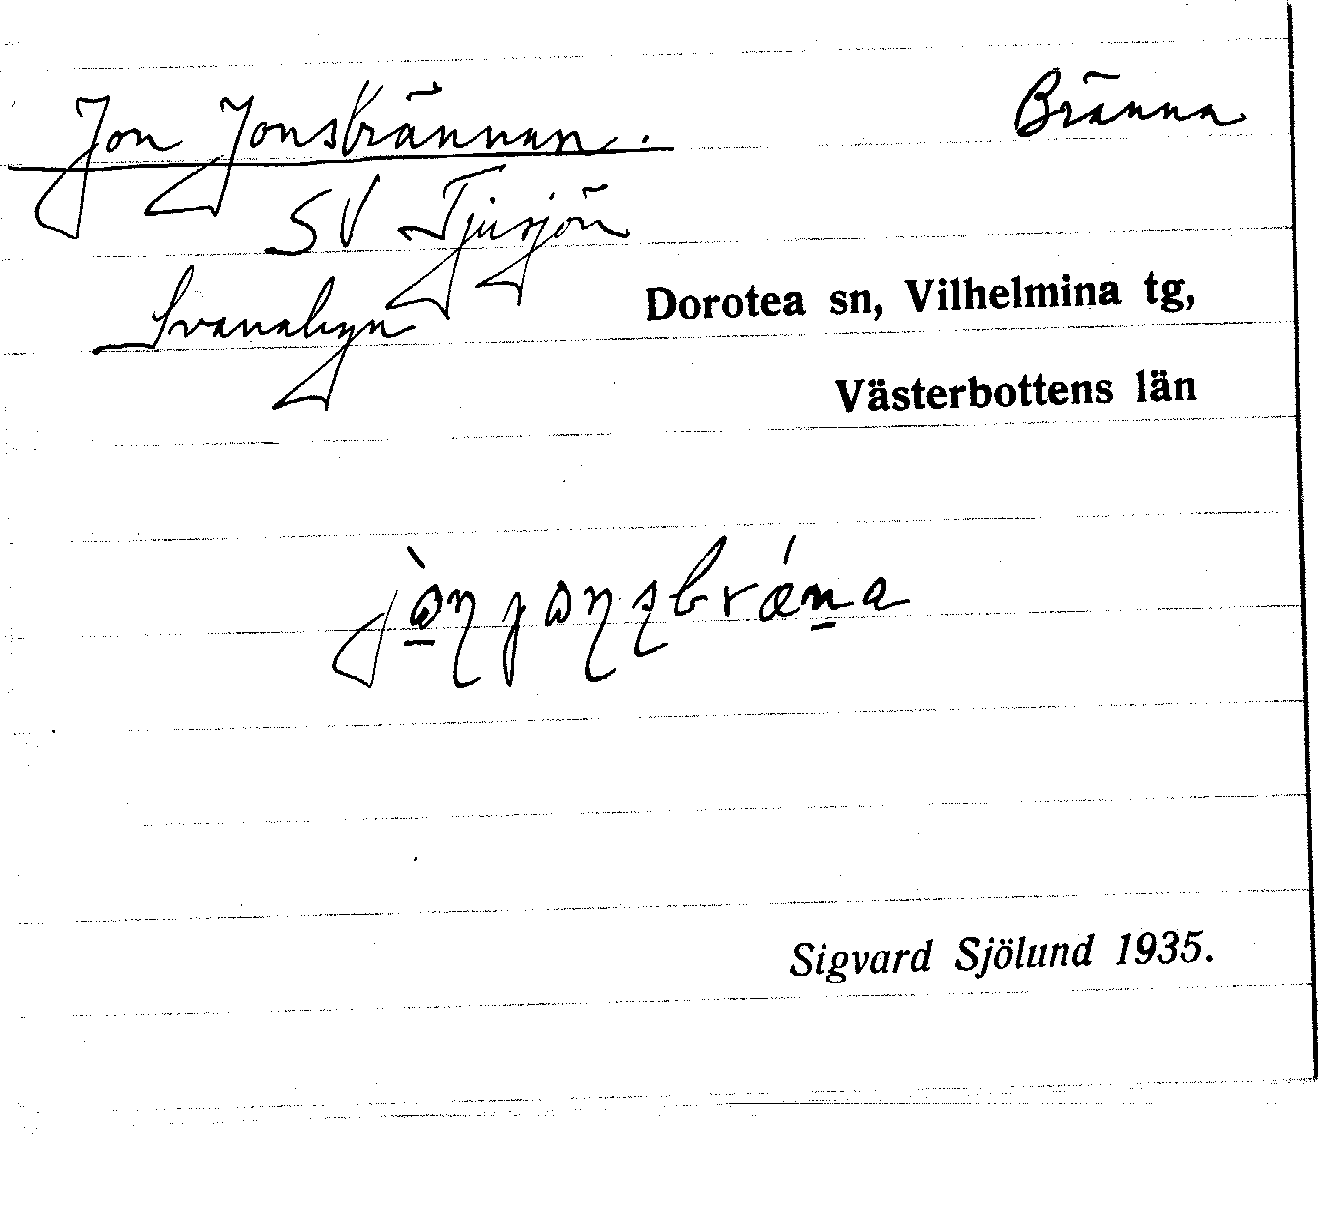 Jon Jonsbrännan. Bränna
SV Tjusjön
Svanabyn
Dorotea sn, Vilhelmina tg,
Västerbottens län
Sigvard Sjölund 1935.